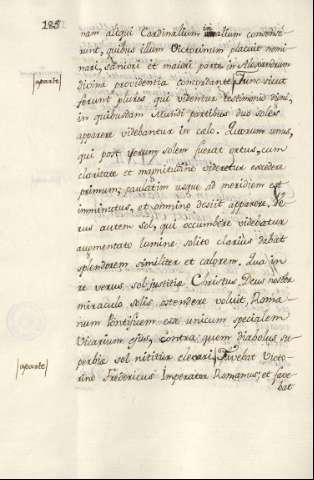 185
nam aliqui Cardinalium in alium consense-
runt, quibus illum Victorinum placuit nomi-
nari, saniori et maiori parte in Alexandrum
divina providentia concordante. Tunc sicut
aparte
ferunt plures qui videntur testimonio digni,
in quibusdam Mundi partibus duo soles
apparere videbantur in calo. Quorum unus,
qui post verum solem fuerat ortus, cum
claritate et magnitudine videretur excedere
primum; paulatim usque ad meridiem est
imminutus, et omnino desiit apparere. Ve-
rus autem sol, qui occumbere videbatur
augmentato lumine solito clarius dabat
splendorem similiter et calorem. Qua in
re verus sol justitia Christus Deus noster
miraculo solis ostendere voluit, Roma-
num Pontificem esse unicum specialem
Vicarium ejus, contra quem diabolus su-
perbia sol nititur elevari. Favebat Victo-
aparte
rino Fredericus Imperator Romanus, et fave-
bat